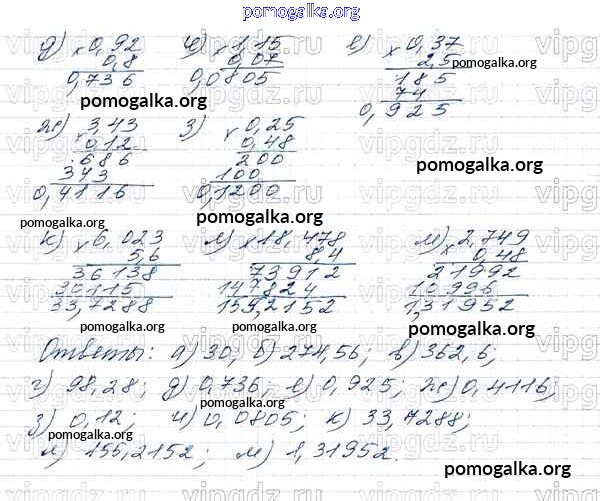 pomogalka.org
д) × 0,92 и) × 1,15 е) × 0,37
0,8 0,07 2,5
0,736 0,0805 185
74
0,925
pomogalka.org
pomogalka.org
ж) × 3,43 з) × 0,25
0,12 0,48
686 200
343 100
0,4116 0,1200
pomogalka.org
pomogalka.org
pomogalka.org
к) × 6,023 л) × 18,478 м) × 2,749
5,6 8,4 0,48
36138 73912 21992
30115 147824 10996
33,7288 155,2152 1,31952
pomogalka.org
pomogalka.org
pomogalka.org
Ответы: а) 30; б) 274,56; в) 362,6;
г) 98,28; д) 0,736; е) 0,925; ж) 0,4116;
pomogalka.org
з) 0,12; и) 0,0805; к) 33,7288;
pomogalka.org
л) 155,2152; м) 1,31952.
pomogalka.org
pomogalka.org
vipgdz.ru